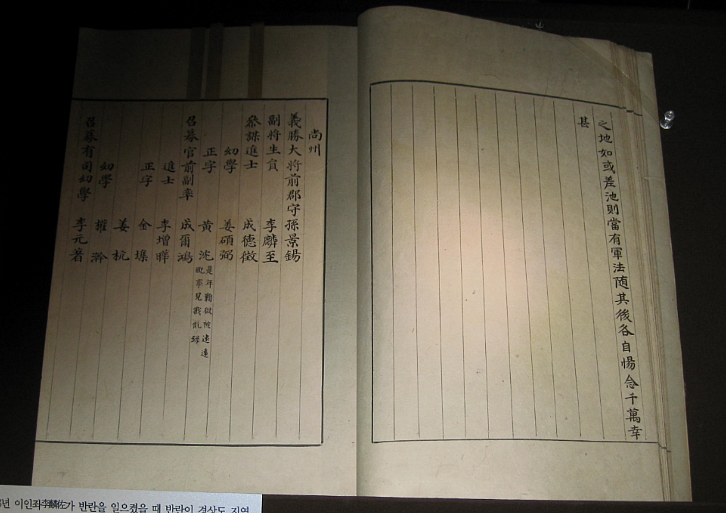 之地如或差池則當有軍法隨其後各自惕念千萬幸
甚
尙州
義勝大將前郡守孫景錫
副將生員 李麟至
參謀進士 成德徵
幼學 姜碩弼
正字 黃
故事見戡亂錄
召募官前副率 成爾鴻
進士 李增曄
正字 金
幼學 姜杭
權
召募有司幼學 李元著
년 이인좌李麟佐가 반란을 일으켰을 때 반란이 경상도 지역